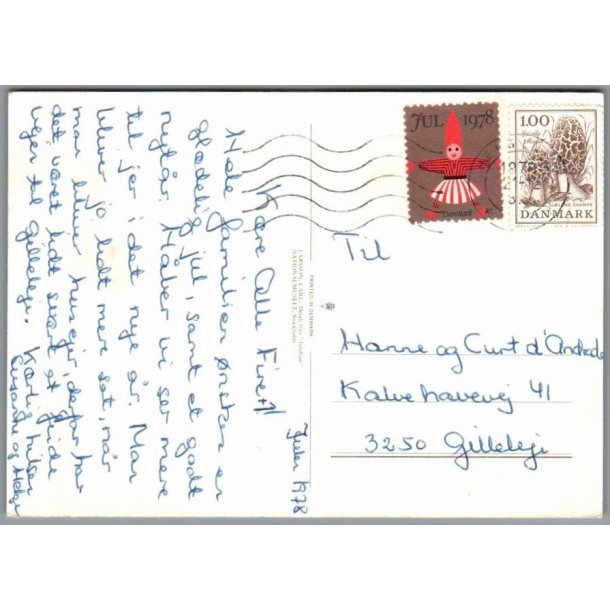 Julen 1978
Kære Alle Fire!
Hele familien ønskes en
glædelig jul, samt et godt
nytår. Håber vi ser mere
til jer i det nye år. Man
bliver jo lidt mere sat, når
man bliver husejer, derfor har
det været lidt svært at finde
vejen til Gilleleje. Kærlig hilsen
Susanne og Helge
LARSSON, CARL: Detail fra "Julafton"
NATIONALMUSEET, Stockholm
PRINTED IN DENMARK
JUL 1978
Danmark
1.00
Spiselig
Morkel
DANMARK
Til
Hanne og Curt d'Andrade
Kalvehavevej 41
3250 Gilleleje